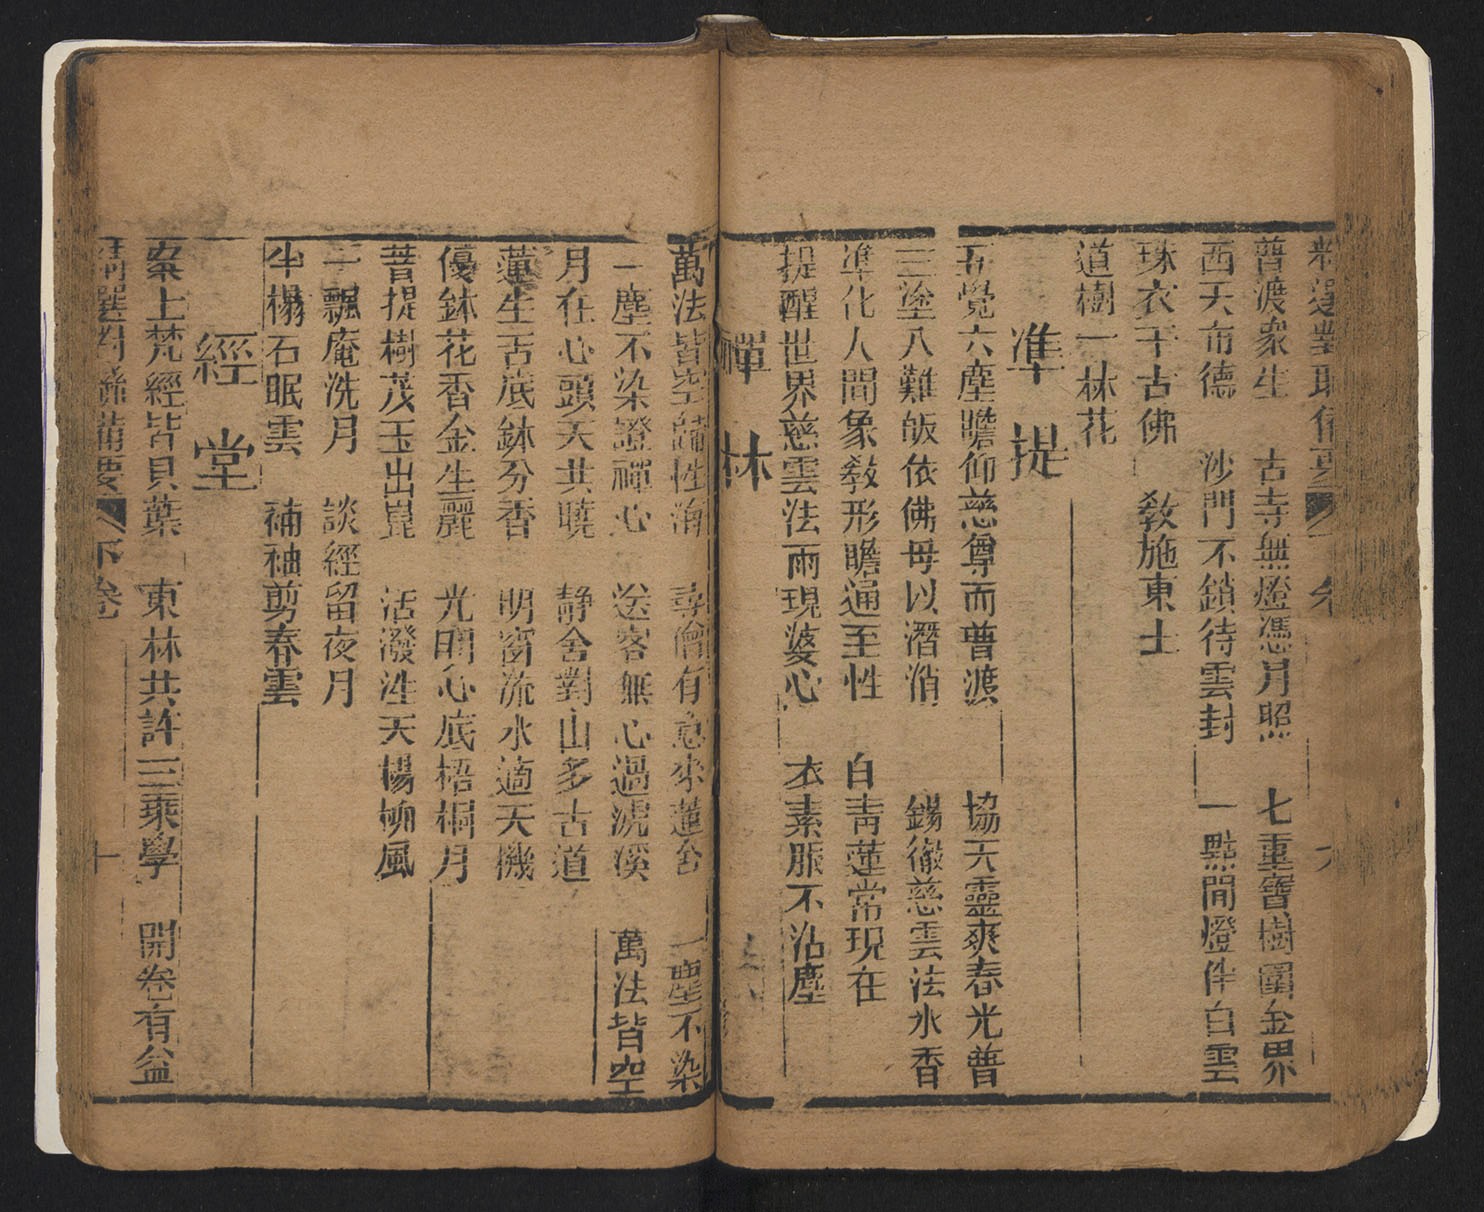 精選對聯備要 卷 九
普渡衆生 古寺無燈憑月照 七重寶樹圍金界
西天布德 沙門不鎖待雲封 一點閒燈伴白雲
珠衣千古佛 敎施東土
道樹一林花
準提
五覺六塵瞻仰慈尊而普渡 協天靈爽春光普
三塗八難皈依佛母以潛消 錫徹慈雲法水香
準化人間象敎形瞻通至性 白靑蓮常現在
提醒世界慈雲法雨現婆心 衣素脤不沾塵
禪林
萬法皆空歸性海 尋僧有意來蓮舍 一塵不染
一塵不染證禪心 送客無心過滮溪 萬法皆空
月在心頭天共曉 靜舍對山多古道
蓮生舌底鉢分香 明窗流水適天機
優鉢花香金生麗 光明心底梧桐月
菩提樹茂玉出崑 活潑洼天楊柳風
一瓢庵洗月 談經留夜月
半榻石眠雲 補袖剪春雲
經堂
案上梵經皆貝葉 東林共許三乘學 開卷有益
精選對聯備要 下卷 十